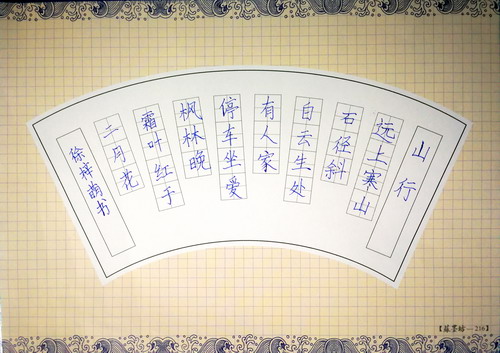 山行
远上寒山
石径斜
白云生处
有人家
停车坐爱
枫林晚
霜叶红于
二月花
徐梓萌书